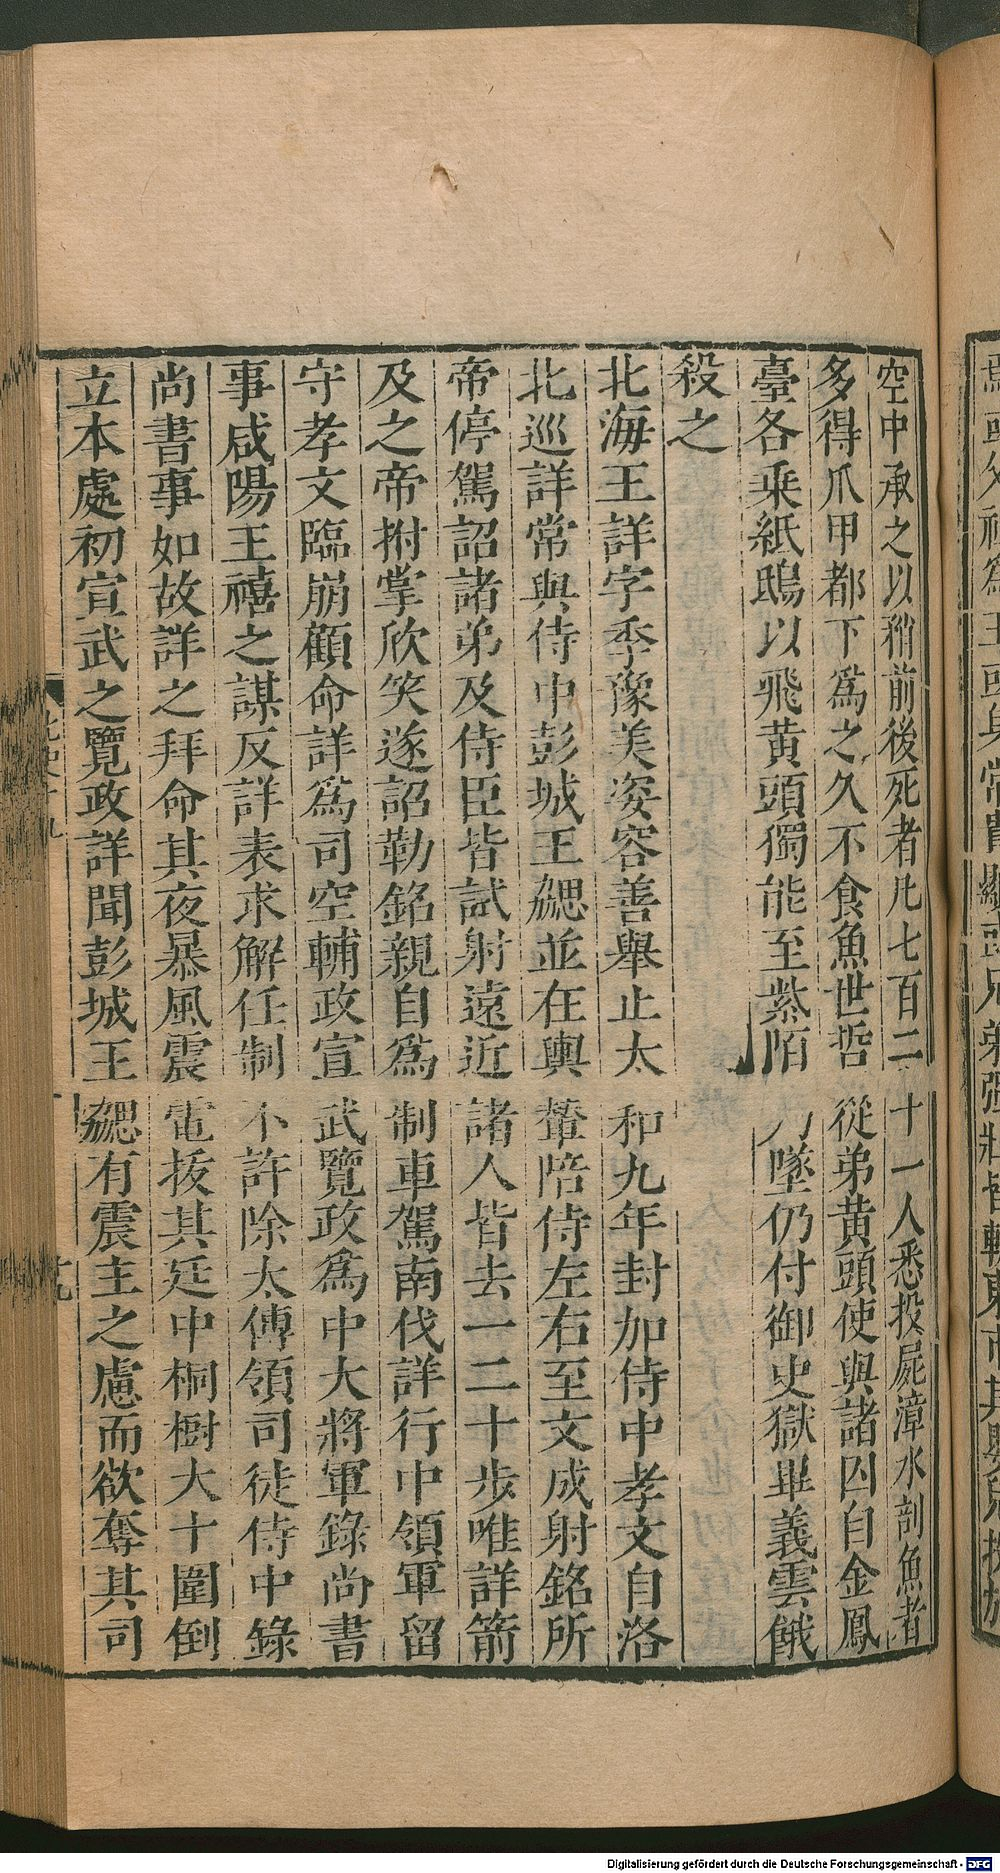 空中承之以矟前後死者凡七百二十一人悉投屍漳水剖魚者
多得爪甲都下爲之久不食魚世哲從弟黃頭使與諸囚自金鳳
臺各乘紙鴟以飛黃頭獨能至紫陌乃墜仍付御史獄畢義雲餓
殺之
北海王詳字季豫美姿容善舉止太和九年封加侍中孝文自洛
北巡詳常與侍中彭城王勰並在輿輦陪侍左右至文成射銘所
帝停駕詔諸弟及侍臣皆試射遠近諸人皆去一二十步唯詳箭
及之帝拊掌欣笑遂詔勒銘親自爲制車駕南伐詳行中領軍留
守孝文臨崩顧命詳爲司空輔政宣武覽政爲中大將軍錄尚書
事咸陽王禧之謀反詳表求解任制不許除太傅領司徒侍中錄
尚書事如故詳之拜命其夜暴風震電拔其廷中桐樹大十圍倒
立本處初宣武之覽政詳聞彭城王勰有震主之慮而欲奪其司
北史十九
十九
Digitalisierung gefördert durch die Deutsche Forschungsgemeinschaft - DFG